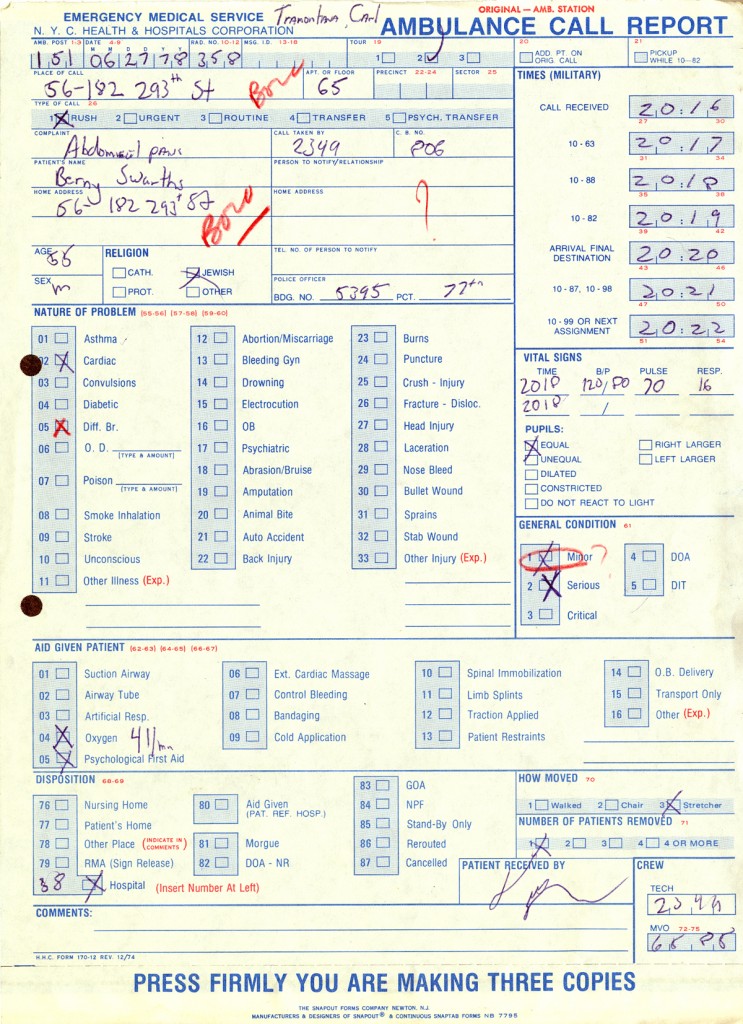 EMERGENCY MEDICAL SERVICE Tramontana, Carl ORIGINAL — AMB. STATION
N. Y. C. HEALTH & HOSPITALS CORPORATION AMBULANCE CALL REPORT
AMB. POST 1-3 DATE 4-9 RAD. NO. 10-12 MSG. I.D. 13-18 TOUR 19 20 21
M M D D Y Y
151 06 27 78 358 1 2 3 ADD. PT. ON ORIG. CALL PICKUP WHILE 10-82
PLACE OF CALL APT. OR FLOOR PRECINCT 22-24 SECTOR 25
56-182 293th St 65
TYPE OF CALL 26
1 RUSH 2 URGENT 3 ROUTINE 4 TRANSFER 5 PSYCH. TRANSFER
COMPLAINT CALL TAKEN BY C. B. NO.
Abdominal pains 2349 806
PATIENT'S NAME PERSON TO NOTIFY/RELATIONSHIP
Berny Swarths
HOME ADDRESS HOME ADDRESS
56-182 293rd St ?
AGE 55 RELIGION TEL. NO. OF PERSON TO NOTIFY
CATH. JEWISH
SEX m PROT. OTHER
POLICE OFFICER
BDG. NO. 5395 PCT. 77th
TIMES (MILITARY)
CALL RECEIVED 20:16
27 30
10 - 63 20:17
31 34
10 - 88 20:18
35 38
10 - 82 20:19
39 42
ARRIVAL FINAL DESTINATION 20:20
43 46
10 - 87, 10 - 98 20:21
47 50
10 - 99 OR NEXT ASSIGNMENT 20:22
51 54
NATURE OF PROBLEM (55-56) (57-58) (59-60)
01 Asthma
02 Cardiac
03 Convulsions
04 Diabetic
05 Diff. Br.
06 O. D.
(TYPE & AMOUNT)
07 Poison
(TYPE & AMOUNT)
08 Smoke Inhalation
09 Stroke
10 Unconscious
11 Other Illness (Exp.)
12 Abortion/Miscarriage
13 Bleeding Gyn
14 Drowning
15 Electrocution
16 OB
17 Psychiatric
18 Abrasion/Bruise
19 Amputation
20 Animal Bite
21 Auto Accident
22 Back Injury
23 Burns
24 Puncture
25 Crush - Injury
26 Fracture - Disloc.
27 Head Injury
28 Laceration
29 Nose Bleed
30 Bullet Wound
31 Sprains
32 Stab Wound
33 Other Injury (Exp.)
VITAL SIGNS
TIME B/P PULSE RESP.
2018 120/80 70 16
2018 /
PUPILS:
EQUAL RIGHT LARGER
UNEQUAL LEFT LARGER
DILATED
CONSTRICTED
DO NOT REACT TO LIGHT
GENERAL CONDITION 61
1 Minor ? 4 DOA
2 Serious 5 DIT
3 Critical
AID GIVEN PATIENT (62-63) (64-65) (66-67)
01 Suction Airway
02 Airway Tube
03 Artificial Resp.
04 Oxygen 4l/mn
05 Psychological First Aid
06 Ext. Cardiac Massage
07 Control Bleeding
08 Bandaging
09 Cold Application
10 Spinal Immobilization
11 Limb Splints
12 Traction Applied
13 Patient Restraints
14 O.B. Delivery
15 Transport Only
16 Other (Exp.)
DISPOSITION 68-69
76 Nursing Home
77 Patient's Home
78 Other Place (INDICATE IN COMMENTS)
79 RMA (Sign Release)
38 Hospital (Insert Number At Left)
80 Aid Given
(PAT. REF. HOSP.)
81 Morgue
82 DOA - NR
83 GOA
84 NPF
85 Stand-By Only
86 Rerouted
87 Cancelled
HOW MOVED 70
1 Walked 2 Chair 3 Stretcher
NUMBER OF PATIENTS REMOVED 71
1 2 3 4 4 OR MORE
PATIENT RECEIVED BY CREW
TECH
2349
MVO 72-75
COMMENTS:
H.H.C. FORM 170-12 REV. 12/74
PRESS FIRMLY YOU ARE MAKING THREE COPIES
THE SNAPOUT FORMS COMPANY NEWTON, N.J.
MANUFACTURERS & DESIGNERS OF SNAPOUT® & CONTINUOUS SNAPTAB FORMS NB 7795